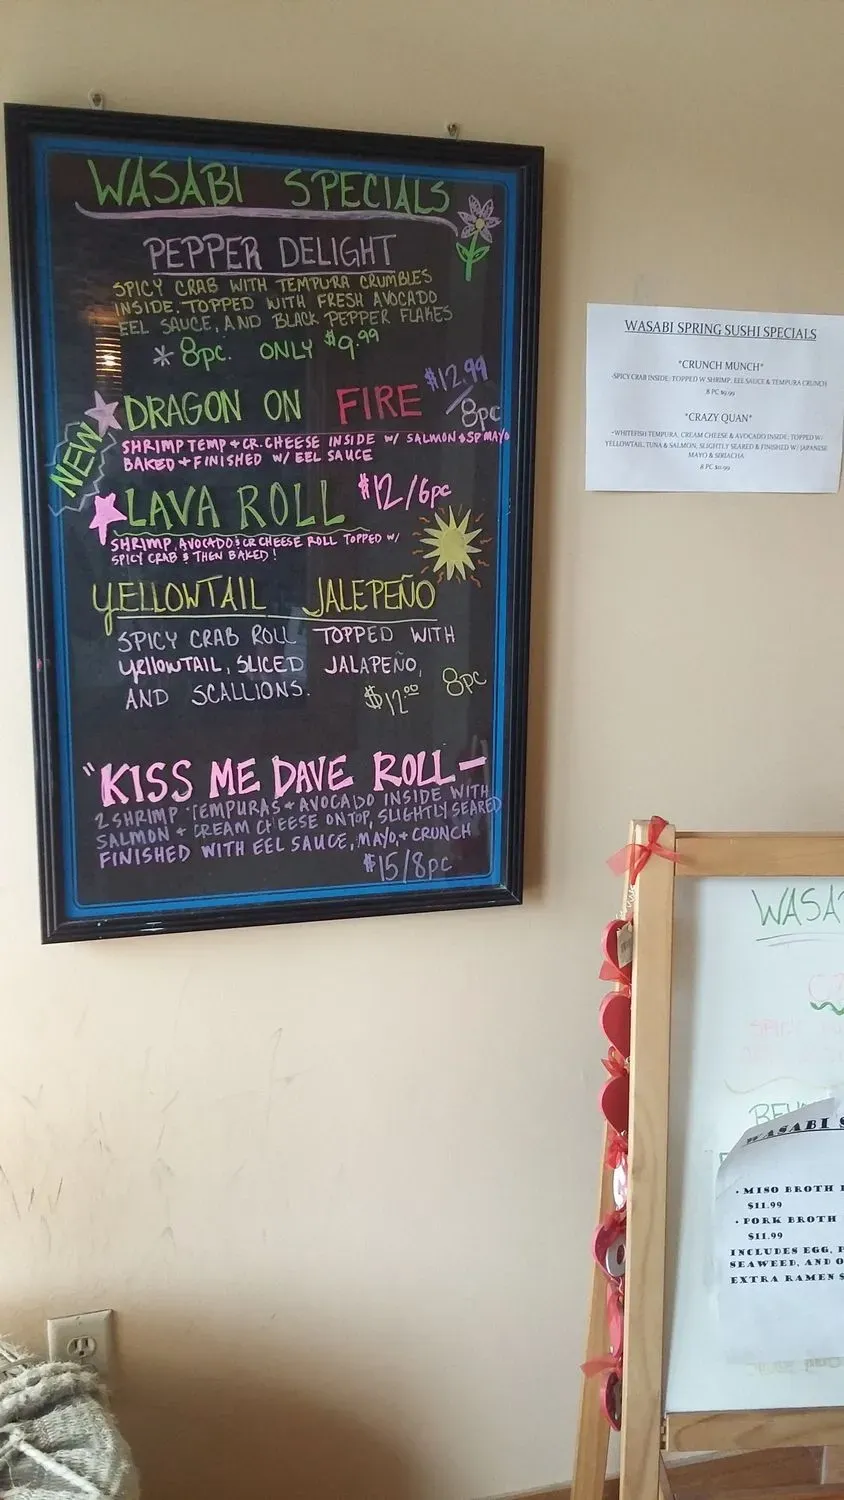 WASABI SPECIALS
PEPPER DELIGHT
SPICY CRAB WITH TEMPURA CRUMBLES
INSIDE. TOPPED WITH FRESH AVOCADO
EEL SAUCE, AND BLACK PEPPER FLAKES
* 8pc. ONLY $9.99
NEW
DRAGON ON FIRE $12.99/8pc
SHRIMP TEMP + CR. CHEESE INSIDE W/ SALMON + SP MAYO
BAKED + FINISHED W/ EEL SAUCE
LAVA ROLL $12/6pc
SHRIMP, AVOCADO & CR CHEESE ROLL TOPPED W/
SPICY CRAB & THEN BAKED!
YELLOWTAIL JALEPEÑO
SPICY CRAB ROLL TOPPED WITH
YELLOWTAIL, SLICED JALAPEÑO,
AND SCALLIONS. $12.00 8pc
"KISS ME DAVE ROLL—
2 SHRIMP TEMPURAS + AVOCADO INSIDE WITH
SALMON + CREAM CHEESE ON TOP, SLIGHTLY SEARED
FINISHED WITH EEL SAUCE, MAYO, + CRUNCH
$15/8pc
WASABI SPRING SUSHI SPECIALS
*CRUNCH MUNCH*
-SPICY CRAB INSIDE; TOPPED W SHRIMP, EEL SAUCE & TEMPURA CRUNCH
8 PC $9.99
*CRAZY QUAN*
-WHITEFISH TEMPURA, CREAM CHEESE & AVOCADO INSIDE; TOPPED W/
YELLOWTAIL, TUNA & SALMON, SLIGHTLY SEARED & FINISHED W/ JAPANESE
MAYO & SIRIACHA
8 PC $11.99
WASA
WASABI S
• MISO BROTH
$11.99
• PORK BROTH
$11.99
INCLUDES EGG,
SEAWEED, AND
EXTRA RAMEN $